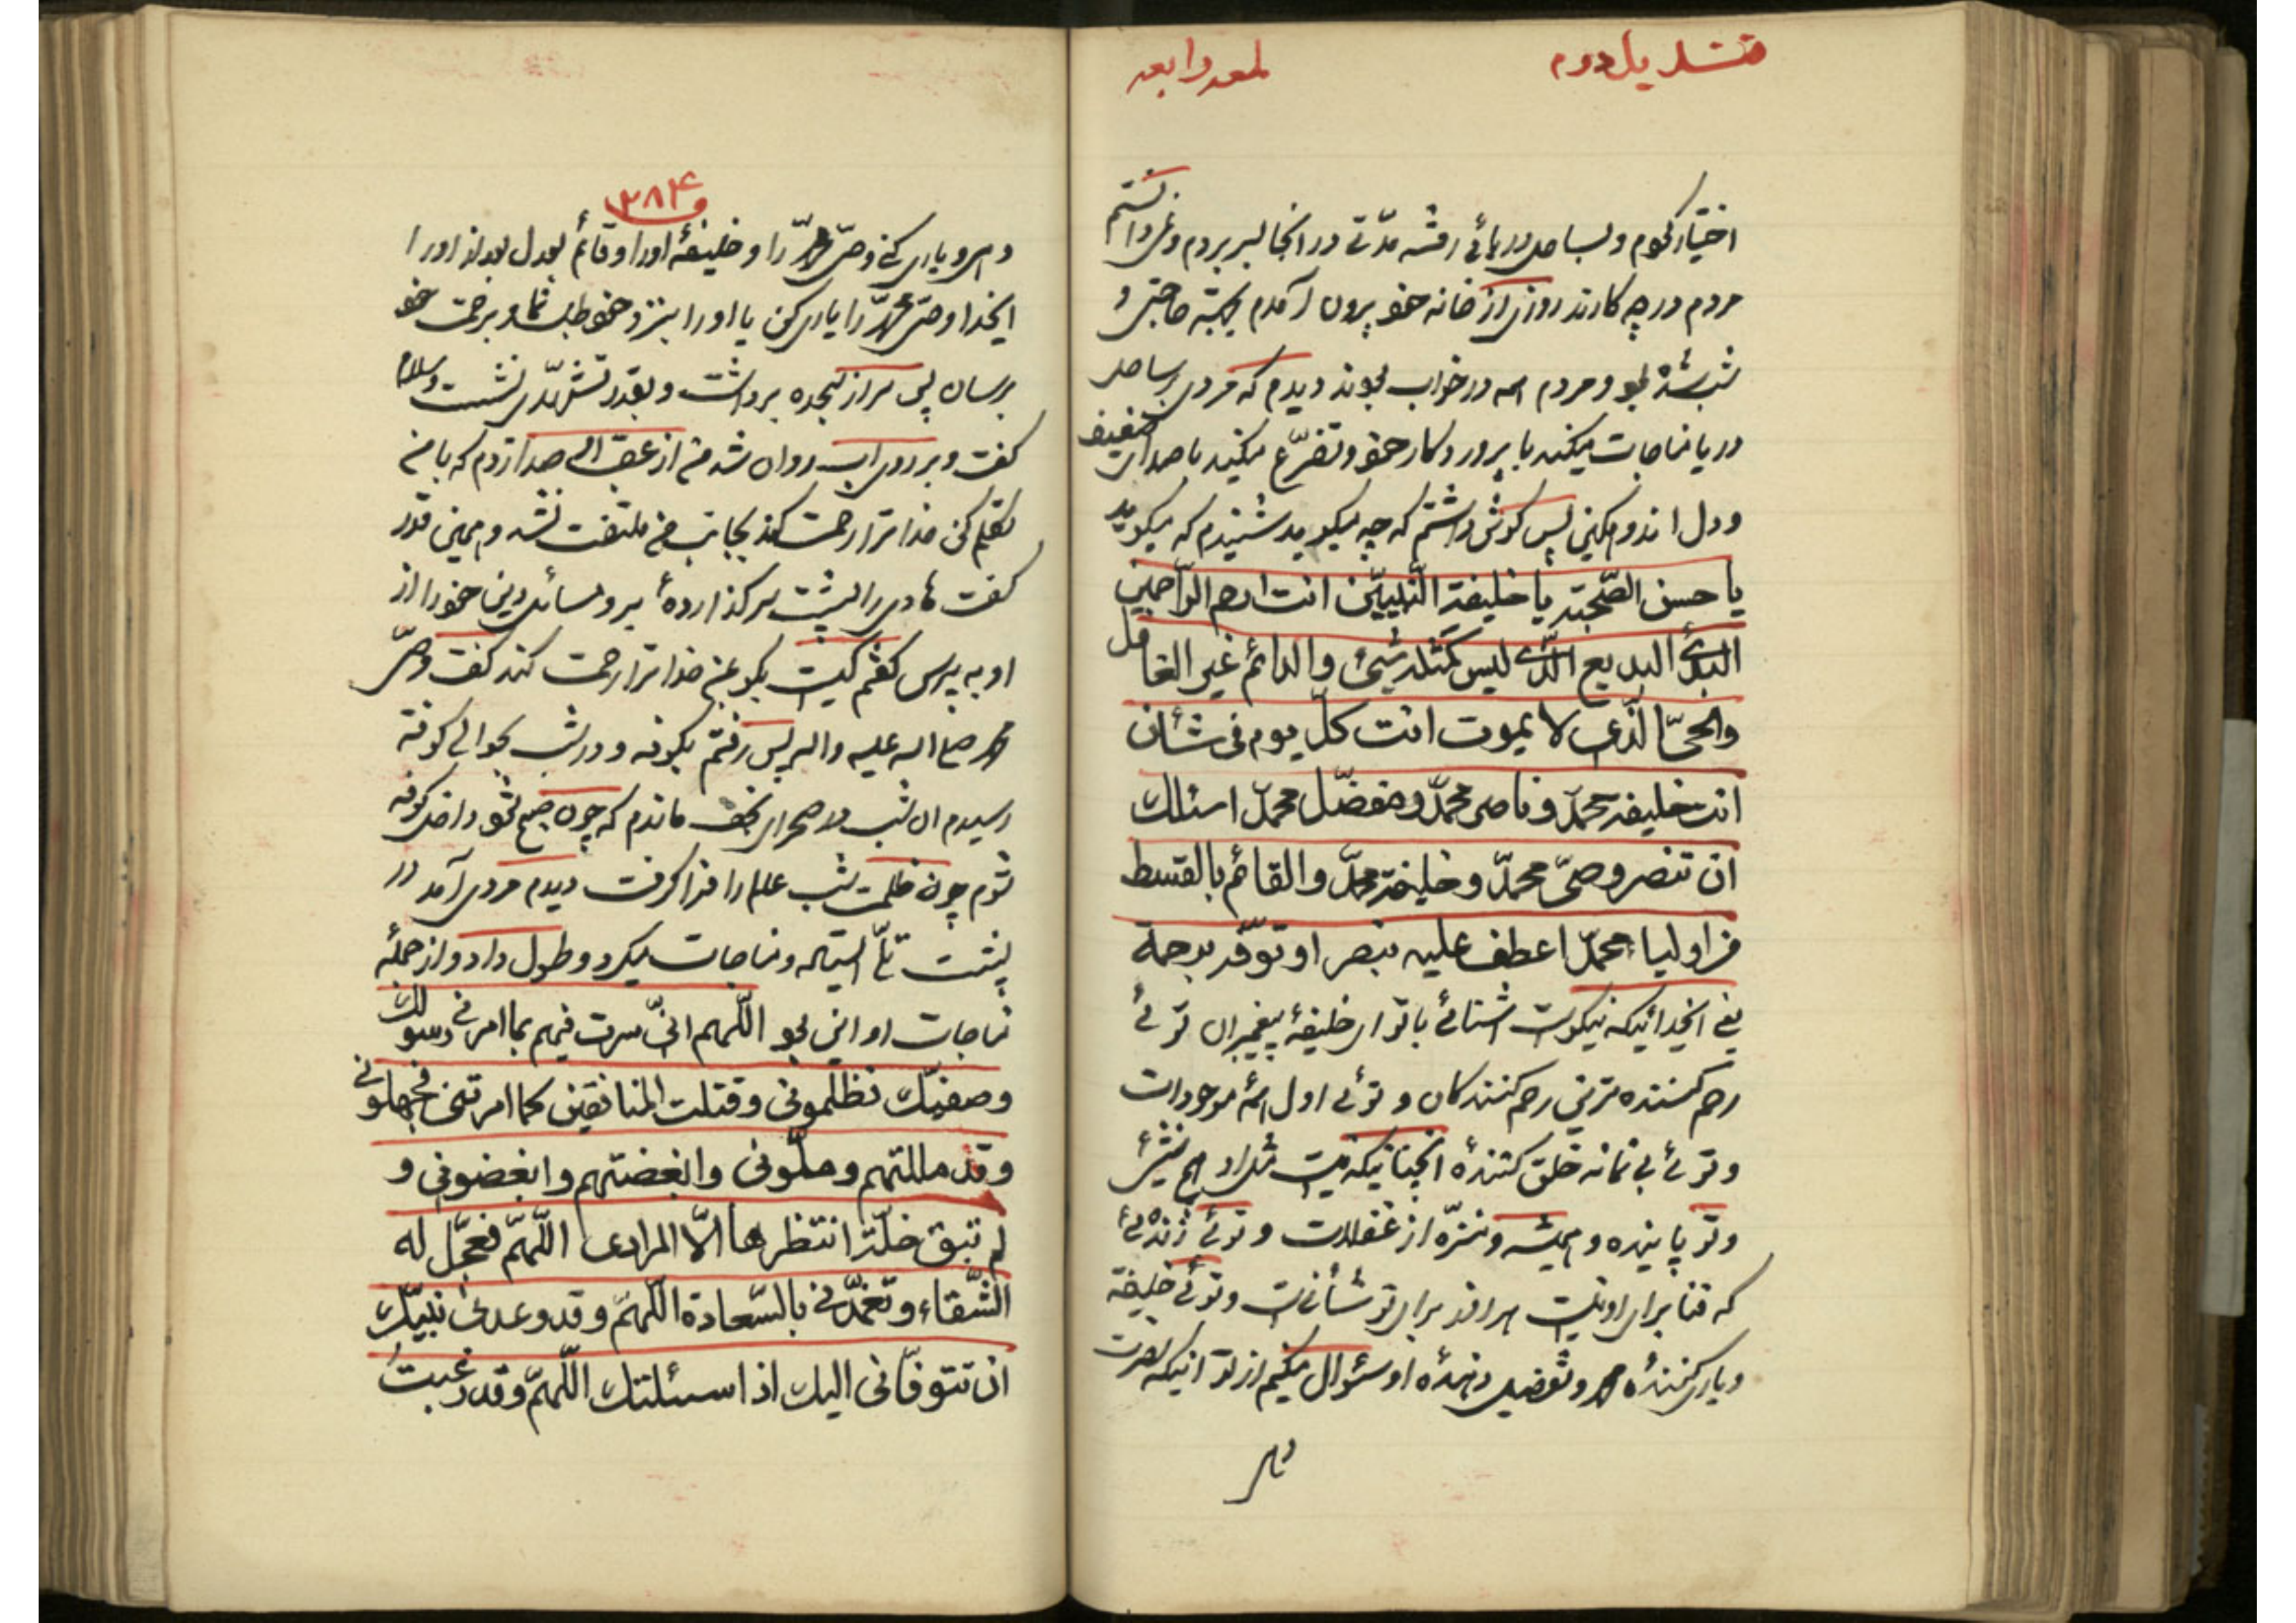 قندیل دوم
لمعه رابعه
اختیار نمودم و بساحل دریائی رفته مدّتی در انجا بسر بردم و نمی دانستم
مردم در چه کارند روزی از خانه خود بیرون آمدم بجهة حاجتی و
شب شده بود و مردم همه در خواب بودند دیدم که مردی بر ساحل
دریا مناجات میکند با پروردکار خود و تضرّع میکند با صدای ضعیف
و دل اندوهکین پس کوش داشتم که چه میکوید شنیدم که میکوید
یا حسن الصّحبته یا خلیفة النّبییّن انت ارحم الرّاحمین
البدئ البدیع الّذی لیس کمثله شیئ والدائم غیر الغافل
والحیّ الّذی لا یموت انت کلّ یوم فی شأن
انت خلیفة محمّد و ناصر محمّد و مفضّل محمّد اسئلك
ان تنصر وصیّ محمّد و خلیفة محمّد والقائم بالقسط
اولیاء محمّد اعطف علیه بنصر او توفّه برحمة
یعنی ایخدائیکه نیکوست اشنائی با تو ای خلیفهٔ پیغمبران توئی
رحم کننده ترین رحم کنندکان و توئی اول همهٔ موجودات
و توئی بی نمانه خلق کنندهٔ انچنانیکه نیست مثل او هیچ شیئ
و تو پاینده و همیشه و منزّه از غفلت و توئی زندهٔ
که فنا برای او نیست هر روز برای تو شأنی است و توئی خلیفة
و یاری کنندهٔ محمد و تفضیل دهندهٔ او سئوال میکنم از تو اینکه نصرت
دهی
۳۸۴
دهی و یاری کنی وصیّ محمّد را و خلیفهٔ او را و قائم بعدل بعد از او را
ایخدا وصیّ محمّد را یاری کن یا او را بنزد خود طلب نما و برحمت خود
برسان پس سر از سجده برداشت و بقدر تشهّدی نشست و سلام
کفت و بر روی اب روان شد من از عقب او صدا زدم که با من
تکلم کن خدا ترا رحمت کند بجانب من ملتفت نشد و همین قدر
کفت هادی را پشت سر کذاردهٔ برو مسائل دینی خود را از
او به پرس کفتم کیست بکو بمن خدا ترا رحمت کند کفت وصیّ
محمد صلی الله علیه واله پس رفتم بکوفه و در شب بحوالی کوفه
رسیدم ان شب در صحرای نجف ماندم که چون صبح شود داخل کوفه
شوم چون ظلمت شب عالم را فرا کرفت دیدم مردی آمد در
پشت تلّی ایستاد و مناجات میکرد و طول داد و از جملهٔ
مناجات او این بود اللّهم انّی سرت فیهم بما امرنی رسولك
وصفیّك فظلمونی و قتلت المنافقین کما امرتنی فجهلونی
و قد مللتهم و ملّونی و ابغضتهم و ابغضونی و
لم تبق خلّة انتظرها الّا المرادی اللّهمّ فعجّل له
الشّقاء و تغمّدنی بالسّعادة اللّهمّ و قد وعدنی نبیّك
ان تتوفّانی الیك اذا سئلتك اللّهمّ و قد رغبت